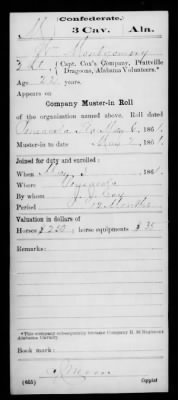 (Confederate.)
M 3 Cav. Ala.
Wm Montgomery
Capt. Cox's Company, Prattville
Dragoons, Alabama Volunteers.*
Age 22 years
Appears on
Company Muster-in Roll
of the organization named above. Roll dated
Pensacola, May 6, 1861
Muster-in to date May 186
Joined for duty and enrolled:
When May 186
Where Pensacola
By whom J. J. Cox
Period 12 Months
Valuation in dollars of
Horses $ horse equipments $
Remarks:
*This company subsequently became Company H, 3d Regiment
Alabama Cavalry.
Book mark:
(655)
Copyist